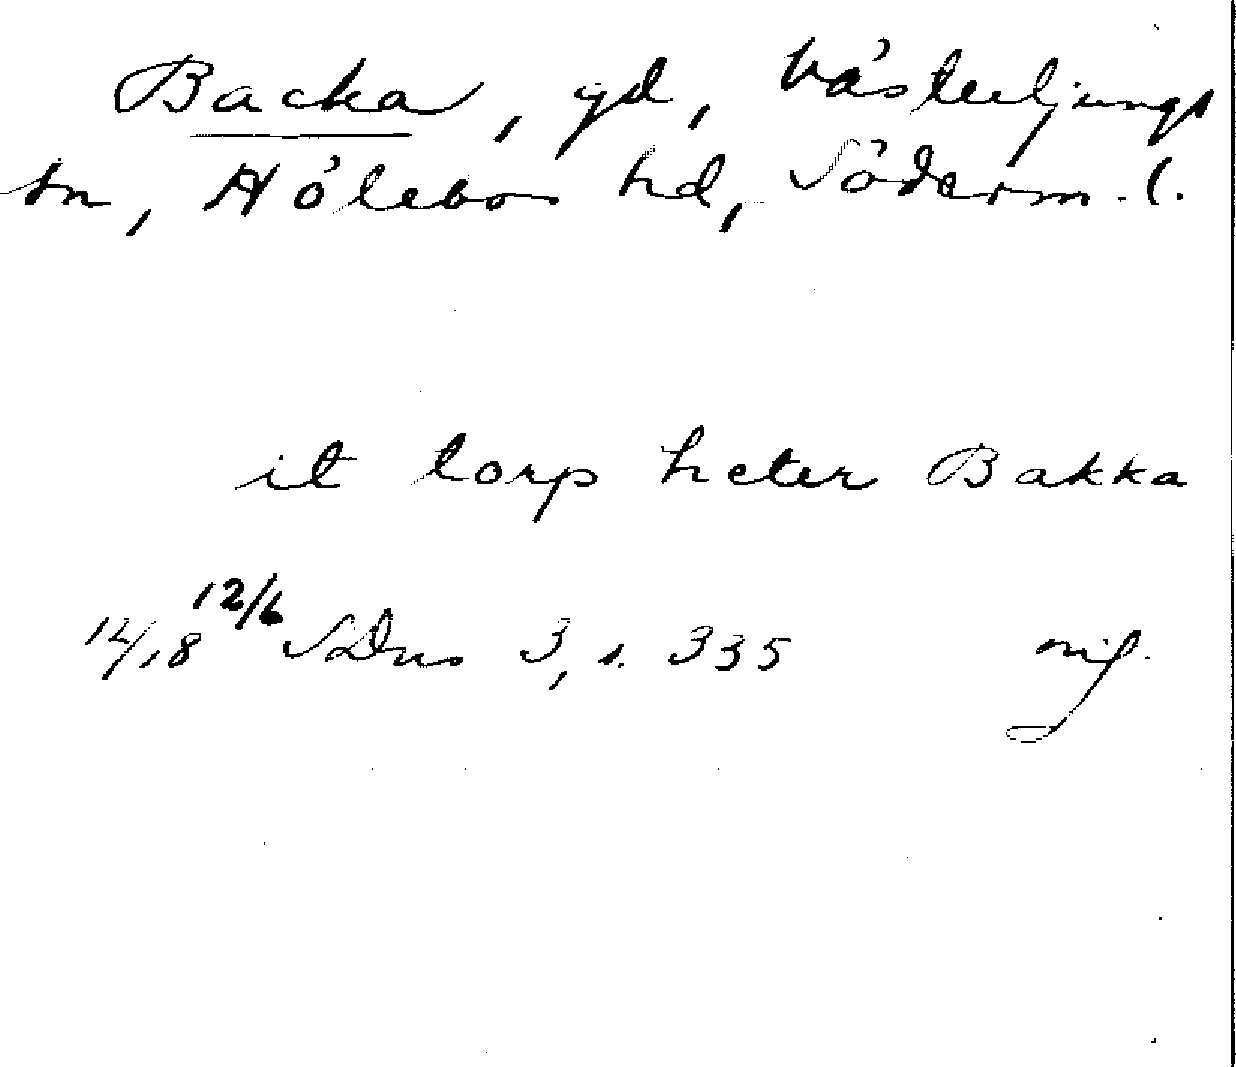 Backa, gd, Västerljungs
sn, Hölebos hd, Söderm. l.
it torp heter Bakka
12/6
14/18 SDns 3, s. 335